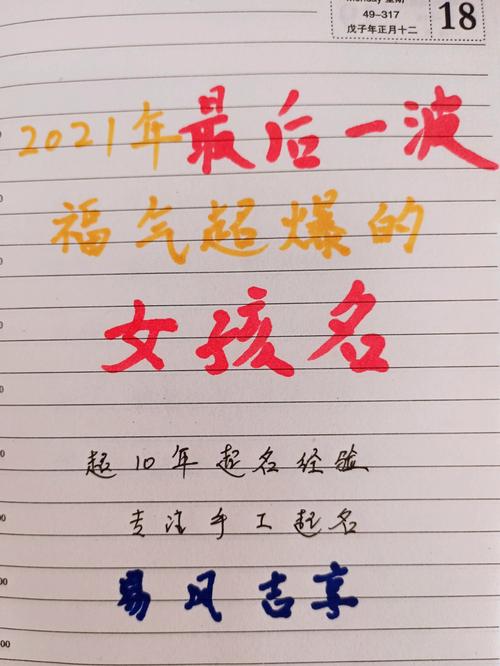 Monday 星期
49-317
戊子年正月十二
18
2021年最后一波
福气超爆的
女孩名
超10年起名经验
专注手工起名
易风吉享